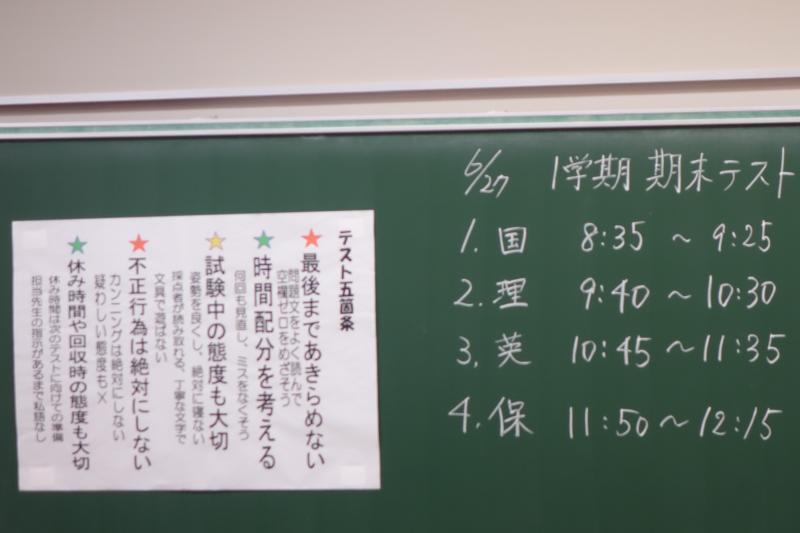 テスト五箇条
★最後まであきらめない
問題文をよく読んで
空欄ゼロをめざそう
★時間配分を考える
何回も見直し、ミスをなくそう
★試験中の態度も大切
姿勢を良くし、絶対に寝ない
採点者が読み取れる、丁寧な文字で
文具で遊ばない
★不正行為は絶対にしない
カンニングは絶対にしない
疑わしい態度も×
★休み時間や回収時の態度も大切
休み時間は次のテストに向けての準備
担当先生の指示があるまで私語なし
6/27 1学期 期末テスト
1. 国 8:35 ~ 9:25
2. 理 9:40 ~ 10:30
3. 英 10:45 ~ 11:35
4. 保 11:50 ~ 12:15